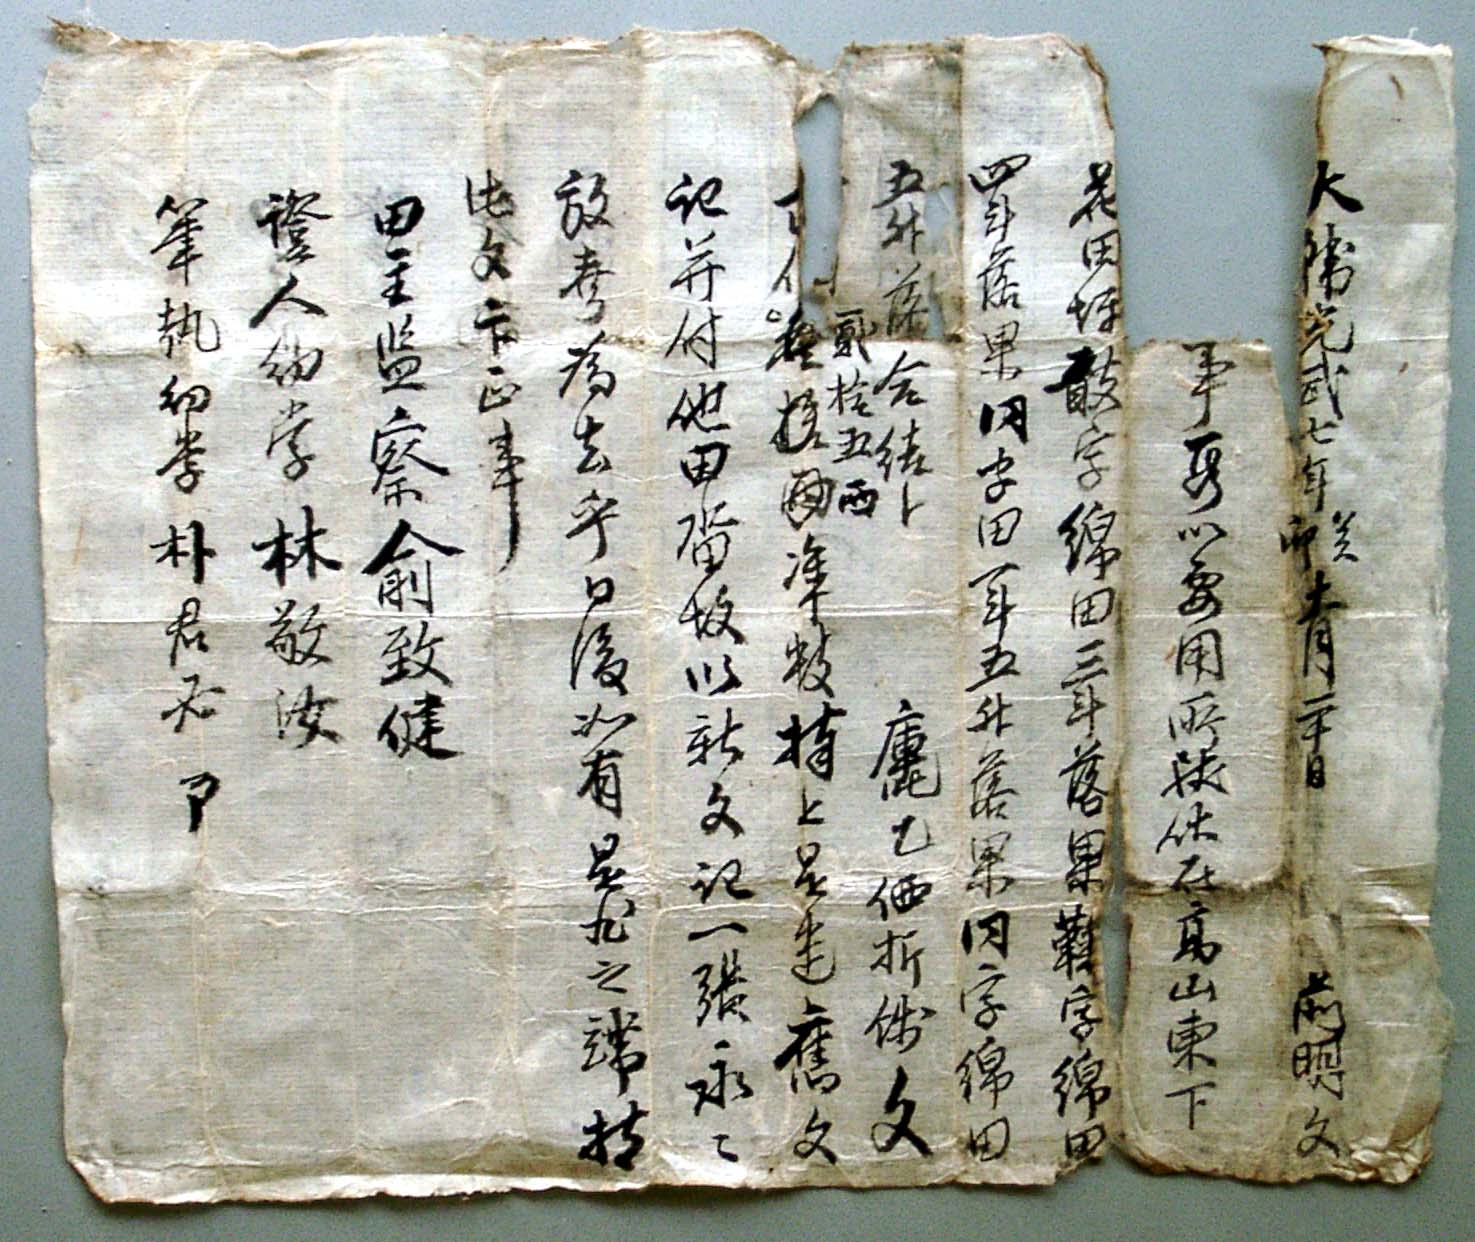 大韓光武七年癸卯十二月二十日 前明文
事段以要用所致伏在高山東下
花田坪 字綿田三斗落果 字綿田
四斗落果同字田一斗五升落果同字綿田
五升落 合結卜 庫乙価折錢文
貳拾五両
拾両準數捧上是遣舊文
記并付他田畓故以新文記一張永々
放賣爲去乎日後如有是非之端持
此文卞正事
田主監察俞致健
證人幼學林敬汝
筆執幼學朴君